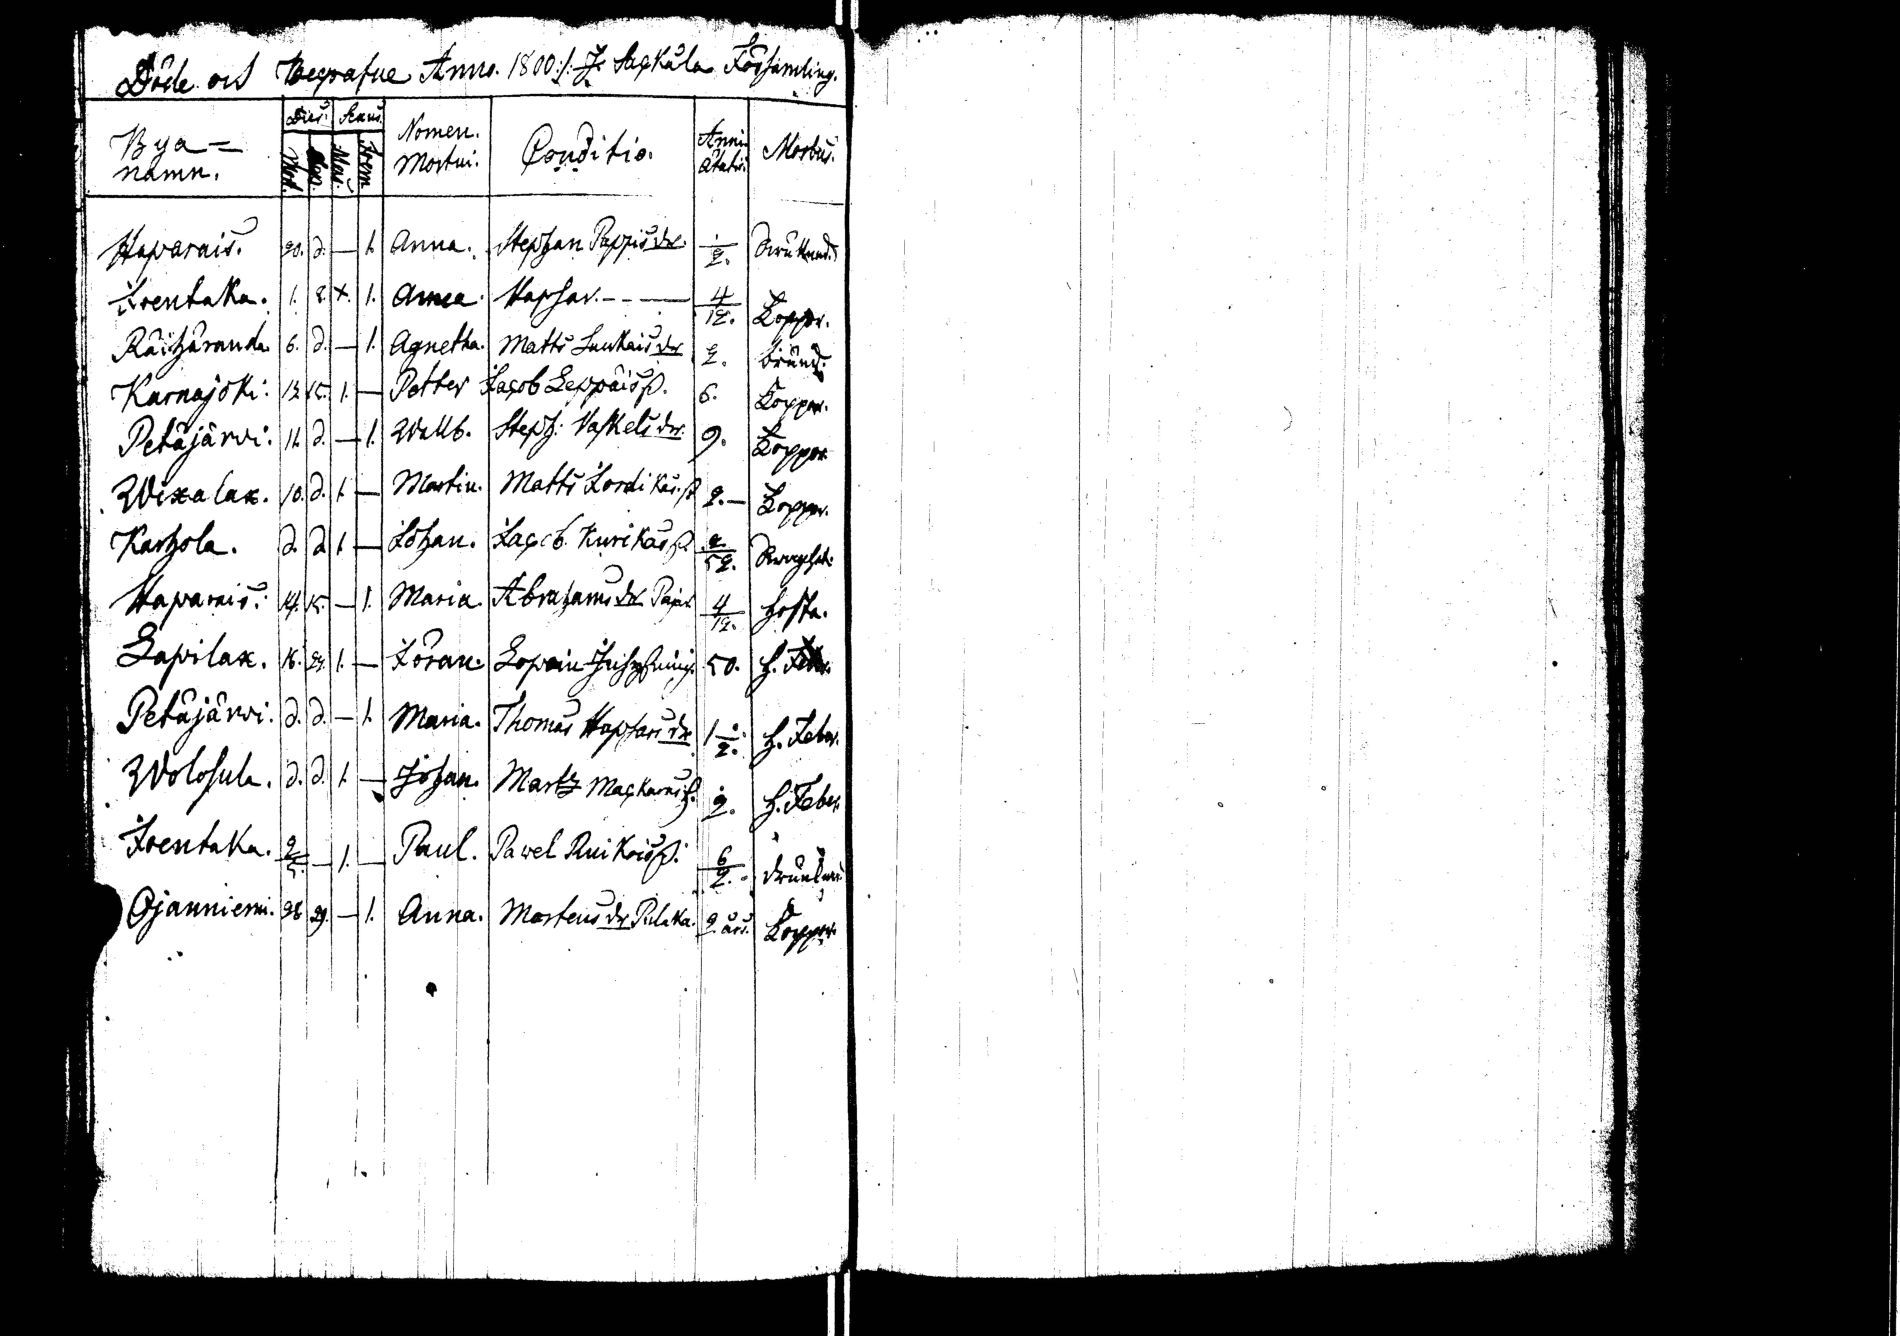 Döde och Begrafne Anno. 1800 :/: I Sackula Församling.
Bya= namn. Dies. Sexus. Nomen. Mortui. Conditio. Anni Ætatis. Morbus.
Mort. Sep. Mas. Foem.
Haparais. 20. d. — 1. Anna. Stephan Pappis dr. 1/2.
Irentaka. 1. 2. +. 1. Anna. Hapsar. — — — 4/12. Koppor.
Räihäranda 6. d. — 1. Agnetha. Matts Laukais dr 2.
Karnajoki: 13. 15. 1. — Petter Jacob Leppäis s. 6. Koppor.
Petäjärvi: 11. d. — 1. Walb. Steph: Vaskels dr. 9. Koppor
Wixalax. 10. d. 1. — Martin. Matts s 2. — Koppor.
Karhola. d. d 1. — Johan. Jacob Kurikas s. 2/52.
Haparais: 14. 15. — 1. Maria Abrahams dr 4/12. Hosta.
Lapilax. 16. 1. — Jöran. 50. H. Feber.
Petäjärvi. d. d. — 1. Maria. Thomas Hapsars dr 1 1/2. H. Feber.
Wolosula. d. d. 1. — Johan. Martz Mackarus s. 2. H. Feber
Irentaka. 1. — Paul. Pavel Ruikois s: 6/2.
Ojanniemi. 28 29. — 1. Anna. Mortens dr Pulaka. 2 års. Koppor